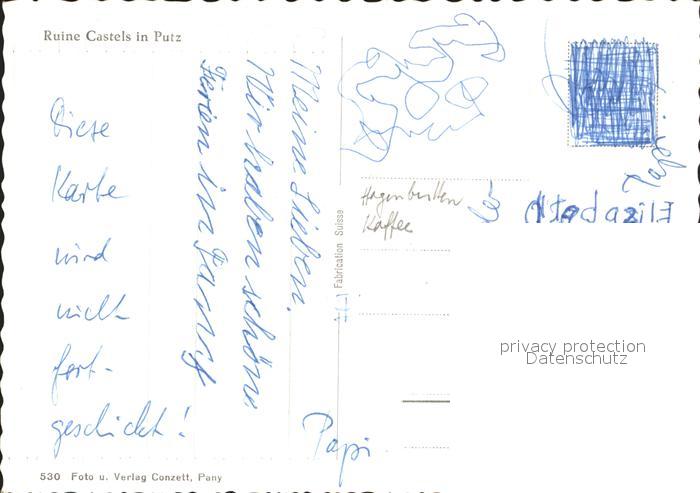 Ruine Castels in Putz
Meine Lieben.
Wir haben schöne
Ferien in
Diese
Karte
wird
nicht
fort-
geschickt!
Papi
Hagenbutten
Kaffee
Elisabeth
Fabrication Suisse
privacy protection
Datenschutz
530 Foto u. Verlag Conzett, Pany